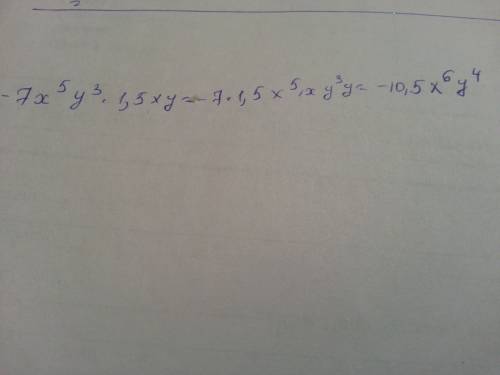 -7x⁵y³·1,5xy=-7·1,5x⁵·xy³y=-10,5x⁶y⁴